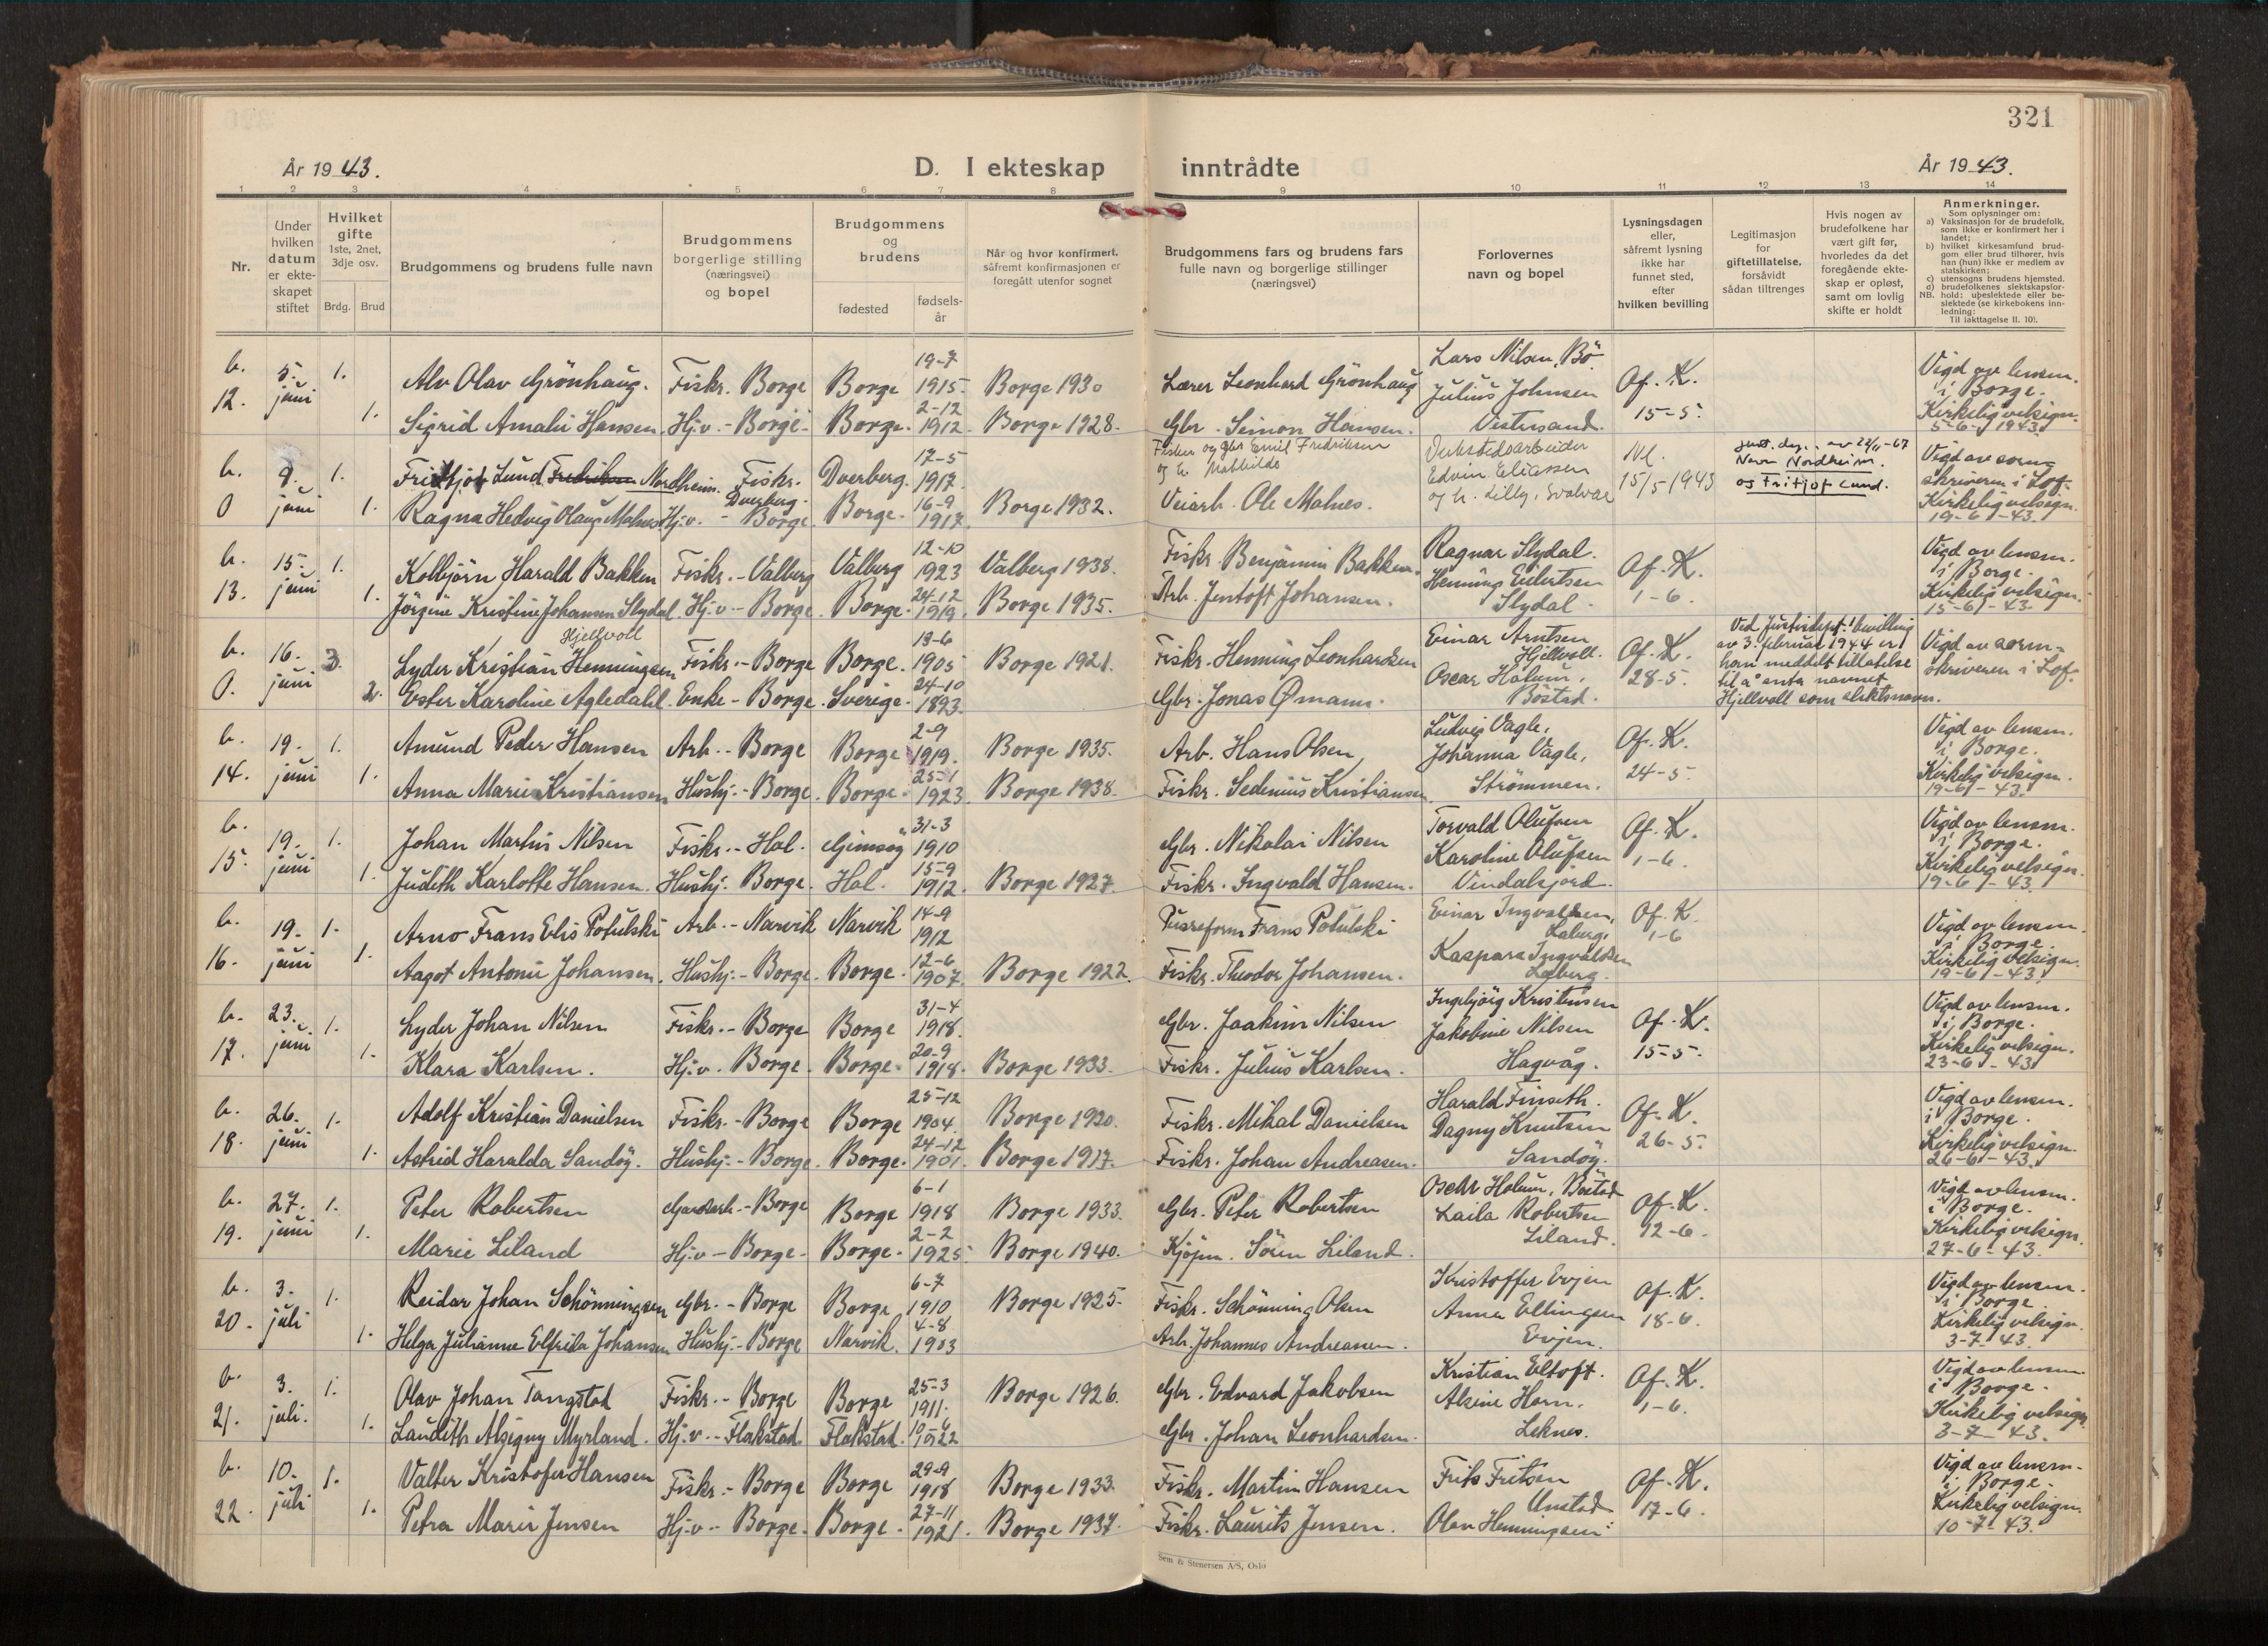 321
År 1943.
D. I ekteskap inntrådte
År 1943.
1 2 3 4 5 6 7 8 9 10 11 12 13 14
Nr.
Under
hvilken
datum
er ekte-
skapet
stiftet
Hvilket
gifte
1ste, 2net,
3dje osv.
Brdg. Brud
Brudgommens og brudens fulle navn
Brudgommens
borgerlige stilling
(næringsvei)
og bopel
Brudgommens
og
brudens
fødested
fødsels-
år
Når og hvor konfirmert,
såfremt konfirmasjonen er
foregått utenfor sognet
Brudgommens fars og brudens fars
fulle navn og borgerlige stillinger
(næringsvei)
Forlovernes
navn og bopel
Lysningsdagen
eller,
såfremt lysning
ikke har
funnet sted,
efter
hvilken bevilling
Legitimasjon
for
giftetillatelse,
forsåvidt
sådan tiltrenges
Hvis nogen av
brudefolkene har
vært gift før,
hvorledes da det
foregående ekte-
skap er opløst,
samt om lovlig
skifte er holdt
Anmerkninger.
Som oplysninger om:
a) Vaksinasjon for de brudefolk,
som ikke er konfirmert her i
landet;
b) hvilket kirkesamfund brud-
gom eller brud tilhører, hvis
han (hun) ikke er medlem av
statskirken;
c) utensogns brudens hjemsted.
d) brudefolkenes slektskapsfor-
NB. hold: ubeslektede eller be-
slektede (se kirkebokens inn-
ledning:
Til iakttagelse II. 10).
b. 5. 1. Alv Olav Grönhaug. Fiskr. Borge Borge 19-7 1915. Borge 1930 Lærer Leonhard Grönhaug Lars Nilsen, Bö. Af. K. Vigd av lensm.
12. juni 1. Sigrid Amalie Hansen. Hj.v. - Borge. Borge. 2-12 1912. Borge 1928. Gbr. Simon Hansen. Julius Johnsen 15-5. i Borge.
Vestresand.
Kirkelig velsign.
5-6-1943.
b. 9. 1. Fritjof Lund Fredriksen Nordheim. Fiskr. Dverberg. Dverberg. 17-5 1917. Fisker og gbr Emil Fredriksen
og h. Mathilde
Edvin Eliassen
15/5 1943
Navn Nordheim.
og Fritjof Lund.
Vigd av soren-
skriveren i Lof.
0 juni 1. Ragna Hedvig Olaug Malnes Hj.v. - Borge. Borge. 16-9 1917. Borge 1932. Veiarb. Ole Malnes. og h. Lilly, Svolvær Kirkelig velsign.
19-6-43.
b. 15. 1. Kolbjörn Harald Bakken Fiskr. - Valberg Valberg 12-10 1923 Valberg 1938. Fiskr. Benjamin Bakken. Ragnar Slydal. Af. K. Vigd av lensm.
13. juni 1. Jörgine Kristine Johansen Slydal. Hj.v. - Borge. Borge. 24-12 1919. Borge 1935. Arb. Jentoft Johansen. Henning Eilertsen 1-6. i Borge.
Slydal.
Kirkelig velsign.
15-6-43.
Hjellvoll
b. 16. 3. Lyder Kristian Henningsen Fiskr. - Borge Borge. 13-6 1905 Borge 1921. Fiskr. Henning Leonhardsen Einar Arntsen Hjellvoll. Af. K. Vigd av soren-
0. juni 2. Ester Karoline Agledahl. Enke - Borge. Sverige. 24-10 1893. Gbr. Jonas Ømann. Oscar Holum, Böstad. 28-5. skriveren i Lof.
Ved Justisdept. bevilling
av 3. februar 1944 er
han meddelt tillatelse
til å anta navnet
Hjellvoll som slektsnavn.
b. 19. 1. Amund Peder Hansen Arb. - Borge Borge 2-9 1919. Borge 1935. Arb. Hans Olsen, Ludvig Vagle, Af. K. Vigd av lensm.
14. juni 1. Anna Marie Kristiansen Hushj. - Borge. Borge. 25-1 1923. Borge 1938. Fiskr. Sedenius Kristiansen. Johanna Vagle, 24-5. i Borge.
Strömmen.
Kirkelig velsign.
19-6-43.
b. 19. 1. Johan Martin Nilsen Fiskr. - Hol. Gimsøy 31-3 1910 Gbr. Nikolai Nilsen Torvald Olufsen Af. K. Vigd av lensm.
15. juni 1. Judith Karlotte Hansen. Hushj. Borge. Hol. 15-9 1912. Borge 1927. Fiskr. Ingvald Hansen. Karoline Olufsen 1-6. i Borge.
Vindalsjord.
Kirkelig velsign.
19-6-43.
b. 19. 1. Arno Frans Elis Potulski Arb. - Narvik Narvik 14-9 1912 Pusseform Frans Potulski Einar Ingvaldsen, Leberg, Af. K. Vigd av lensm.
16. juni 1. Aagot Antonie Johansen. Hushj. - Borge. Borge. 12-6 1907. Borge 1922. Fiskr. Theodor Johansen. Kaspara Ingvaldsen Leberg. 1-6 i Borge.
Kirkelig velsign.
19-6-43.
b. 23. 1. Lyder Johan Nilsen Fiskr. - Borge Borge 31-4 1918. Gbr. Joakim Nilsen Ingebjörg Kristensen Af. K. Vigd av lensm.
17. juni 1. Klara Karlsen. Hj.v. Borge. Borge. 20-9 1918. Borge 1933. Fiskr. Julius Karlsen. Jakobine Nilsen 15-5. i Borge.
Hagvåg.
Kirkelig velsign.
23-6-43
b. 26. 1. Adolf Kristian Danielsen Fiskr. - Borge Borge 25-12 1904. Borge 1920. Fiskr. Mikal Danielsen Harald Finseth. Af. K. Vigd av lensm.
18. juni 1. Astrid Haralda Sandöy. Hushj. - Borge. Borge. 24-12 1901. Borge 1917. Fiskr. Johan Andreasen. Dagny Knutsen 26-5. i Borge.
Sandöy.
Kirkelig velsign.
26-6-43.
b. 27. 1. Peter Robertsen Gardsarb. - Borge Borge 6-1 1918 Borge 1933. Gbr. Peter Robertsen Oscar Holum, Böstad Af. K. Vigd av lensm.
19. juni 1. Marie Liland Hj.v - Borge. Borge. 2-2 1925. Borge 1940. Kjøpm. Sören Liland. Laila Robertsen 12-6. i Borge.
Liland.
Kirkelig velsign.
27-6-43.
b. 3. 1. Reidar Johan Schönningsen Gbr. - Borge Borge 6-7 1910 Borge 1925. Fiskr. Schönning Olsen Kristoffer Evjen Af. K. Vigd av lensm.
20. juli 1. Helga Julianne Elfrida Johansen Hushj. - Borge Narvik. 4-8 1903 Arb. Johannes Andreasen. Anna Ellingsen 18-6. i Borge
Evjen.
Kirkelig velsign.
3-7-43.
b. 3. 1. Olav Johan Tangstad Fiskr. - Borge Borge 25-3 1911. Borge 1926. Gbr. Edvard Jakobsen Kristian Eltoft. Af. K. Vigd av lensm.
21. juli. 1. Laudith Alsigny Myrland. Hj.v. - Flakstad. Flakstad. 1922 Gbr. Johan Leonhardsen. Alsine Horn. 1-6. i Borge.
Leknes.
Kirkelig velsign.
3-7-43.
b. 10. 1. Valter Kristofer Hansen Fiskr. - Borge Borge 29-9 1918 Borge 1933. Fiskr. Martin Hansen Frits Fritsen Af. K. Vigd av lensm.
22. juli 1. Petra Marie Jensen Hj.v - Borge. Borge. 27-11 1921. Borge 1937. Fiskr. Laurits Jensen. Unstad 17-6. i Borge.
Olav Henningsen.
Kirkelig velsign.
10-7-43.
Sem & Stenersen A/S, Oslo